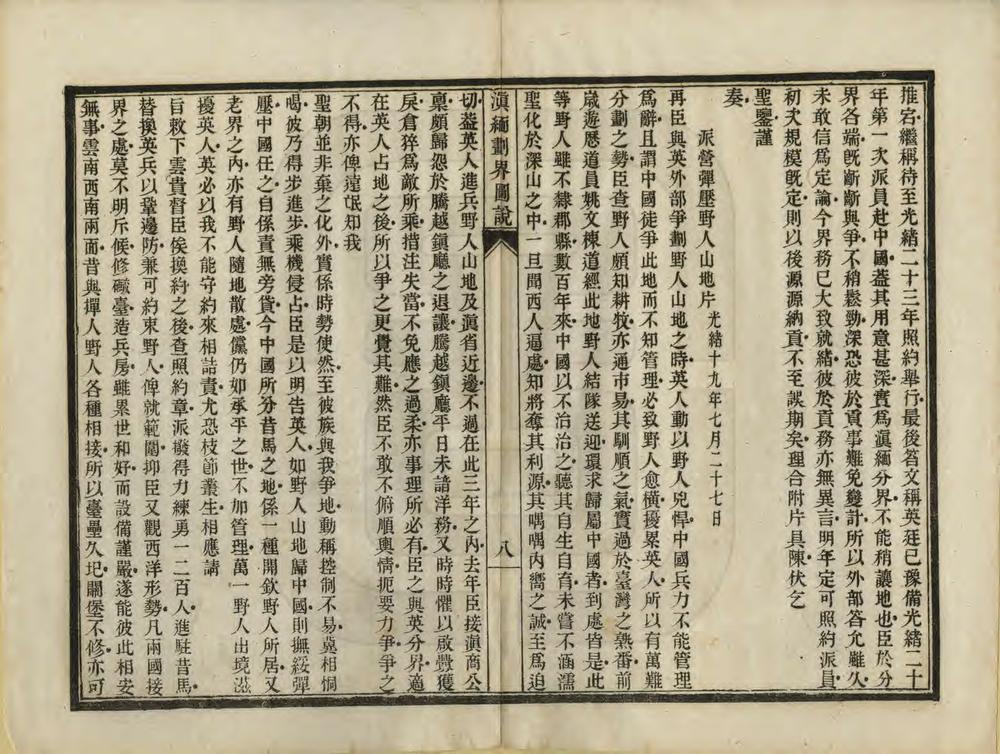 推宕繼稱待至光緒二十三年照約舉行最後答文稱英廷已豫備光緒二十
年第一次派員赴中國葢其用意甚深實爲滇緬分界不能稍讓地也臣於分
界各端旣斷斷與爭不稍鬆勁深恐彼於貢事難免變計所以外部答允雖久
未敢信爲定論今界務已大致就緒彼於貢務亦無異言明年定可照約派員
初次規模旣定則以後源源納貢不至誤期矣理合附片具陳伏乞
聖鑒謹
奏
派營彈壓野人山地片 光緒十九年七月二十七日
再臣與英外部爭劃野人山地之時英人動以野人兇悍中國兵力不能管理
爲辭且謂中國徒爭此地而不知管理必致野人愈橫擾累英人所以有萬難
分劃之勢臣查野人頗知耕牧亦通市易其馴順之氣實過於臺灣之熟番前
歲遊歷道員姚文棟道經此地野人結隊送迎環求歸屬中國者到處皆是此
等野人雖不隸郡縣數百年來中國以不治治之聽其自生自育未嘗不涵濡
聖化於深山之中一旦聞西人逼處知將奪其利源其喁喁內嚮之誠至爲迫
滇緬劃界圖說
八
切葢英人進兵野人山地及滇省近邊不過在此三年之內去年臣接滇商公
稟頗歸怨於騰越鎭廳之退讓騰越鎭廳平日未諳洋務又時時懼以啟釁獲
戾倉猝爲敵所乘措注失當不免應之過柔亦事理所必有臣之與英分界適
在英人占地之後所以爭之更覺其難然臣不敢不俯順輿情扼要力爭爭之
不得亦俾遠氓知我
聖朝並非棄之化外實係時勢使然至彼族與我爭地動稱控制不易冀相恫
喝彼乃得步進步乘機侵占臣是以明告英人如野人山地歸中國則撫綏彈
壓中國任之自係責無旁貸今中國所分昔馬之地係一種開欽野人所居又
老界之內亦有野人隨地散處儻仍如承平之世不加管理萬一野人出境滋
擾英人英必以我不能守約來相詰責尤恐枝節叢生相應請
旨敕下雲貴督臣俟換約之後查照約章派撥得力練勇一二百人進駐昔馬
替換英兵以鞏邊防兼可約束野人俾就範圍抑臣又觀西洋形勢凡兩國接
界之處莫不明斥候修礮臺造兵房雖累世和好而設備謹嚴遂能彼此相安
無事雲南西南兩面昔與撣人野人各種相接所以臺壘久圮關堡不修亦可